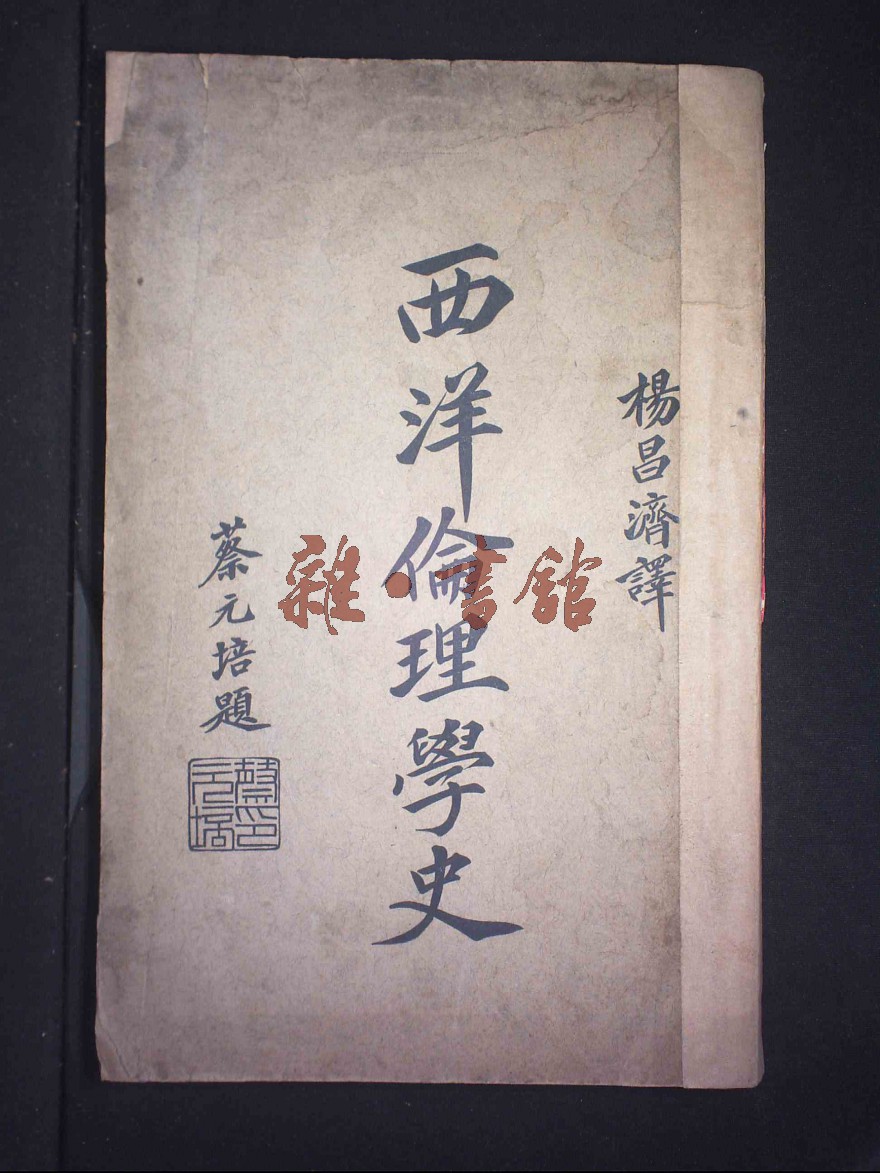 楊昌濟譯
西洋倫理學史
蔡元培題
蔡印元培
雜·書館